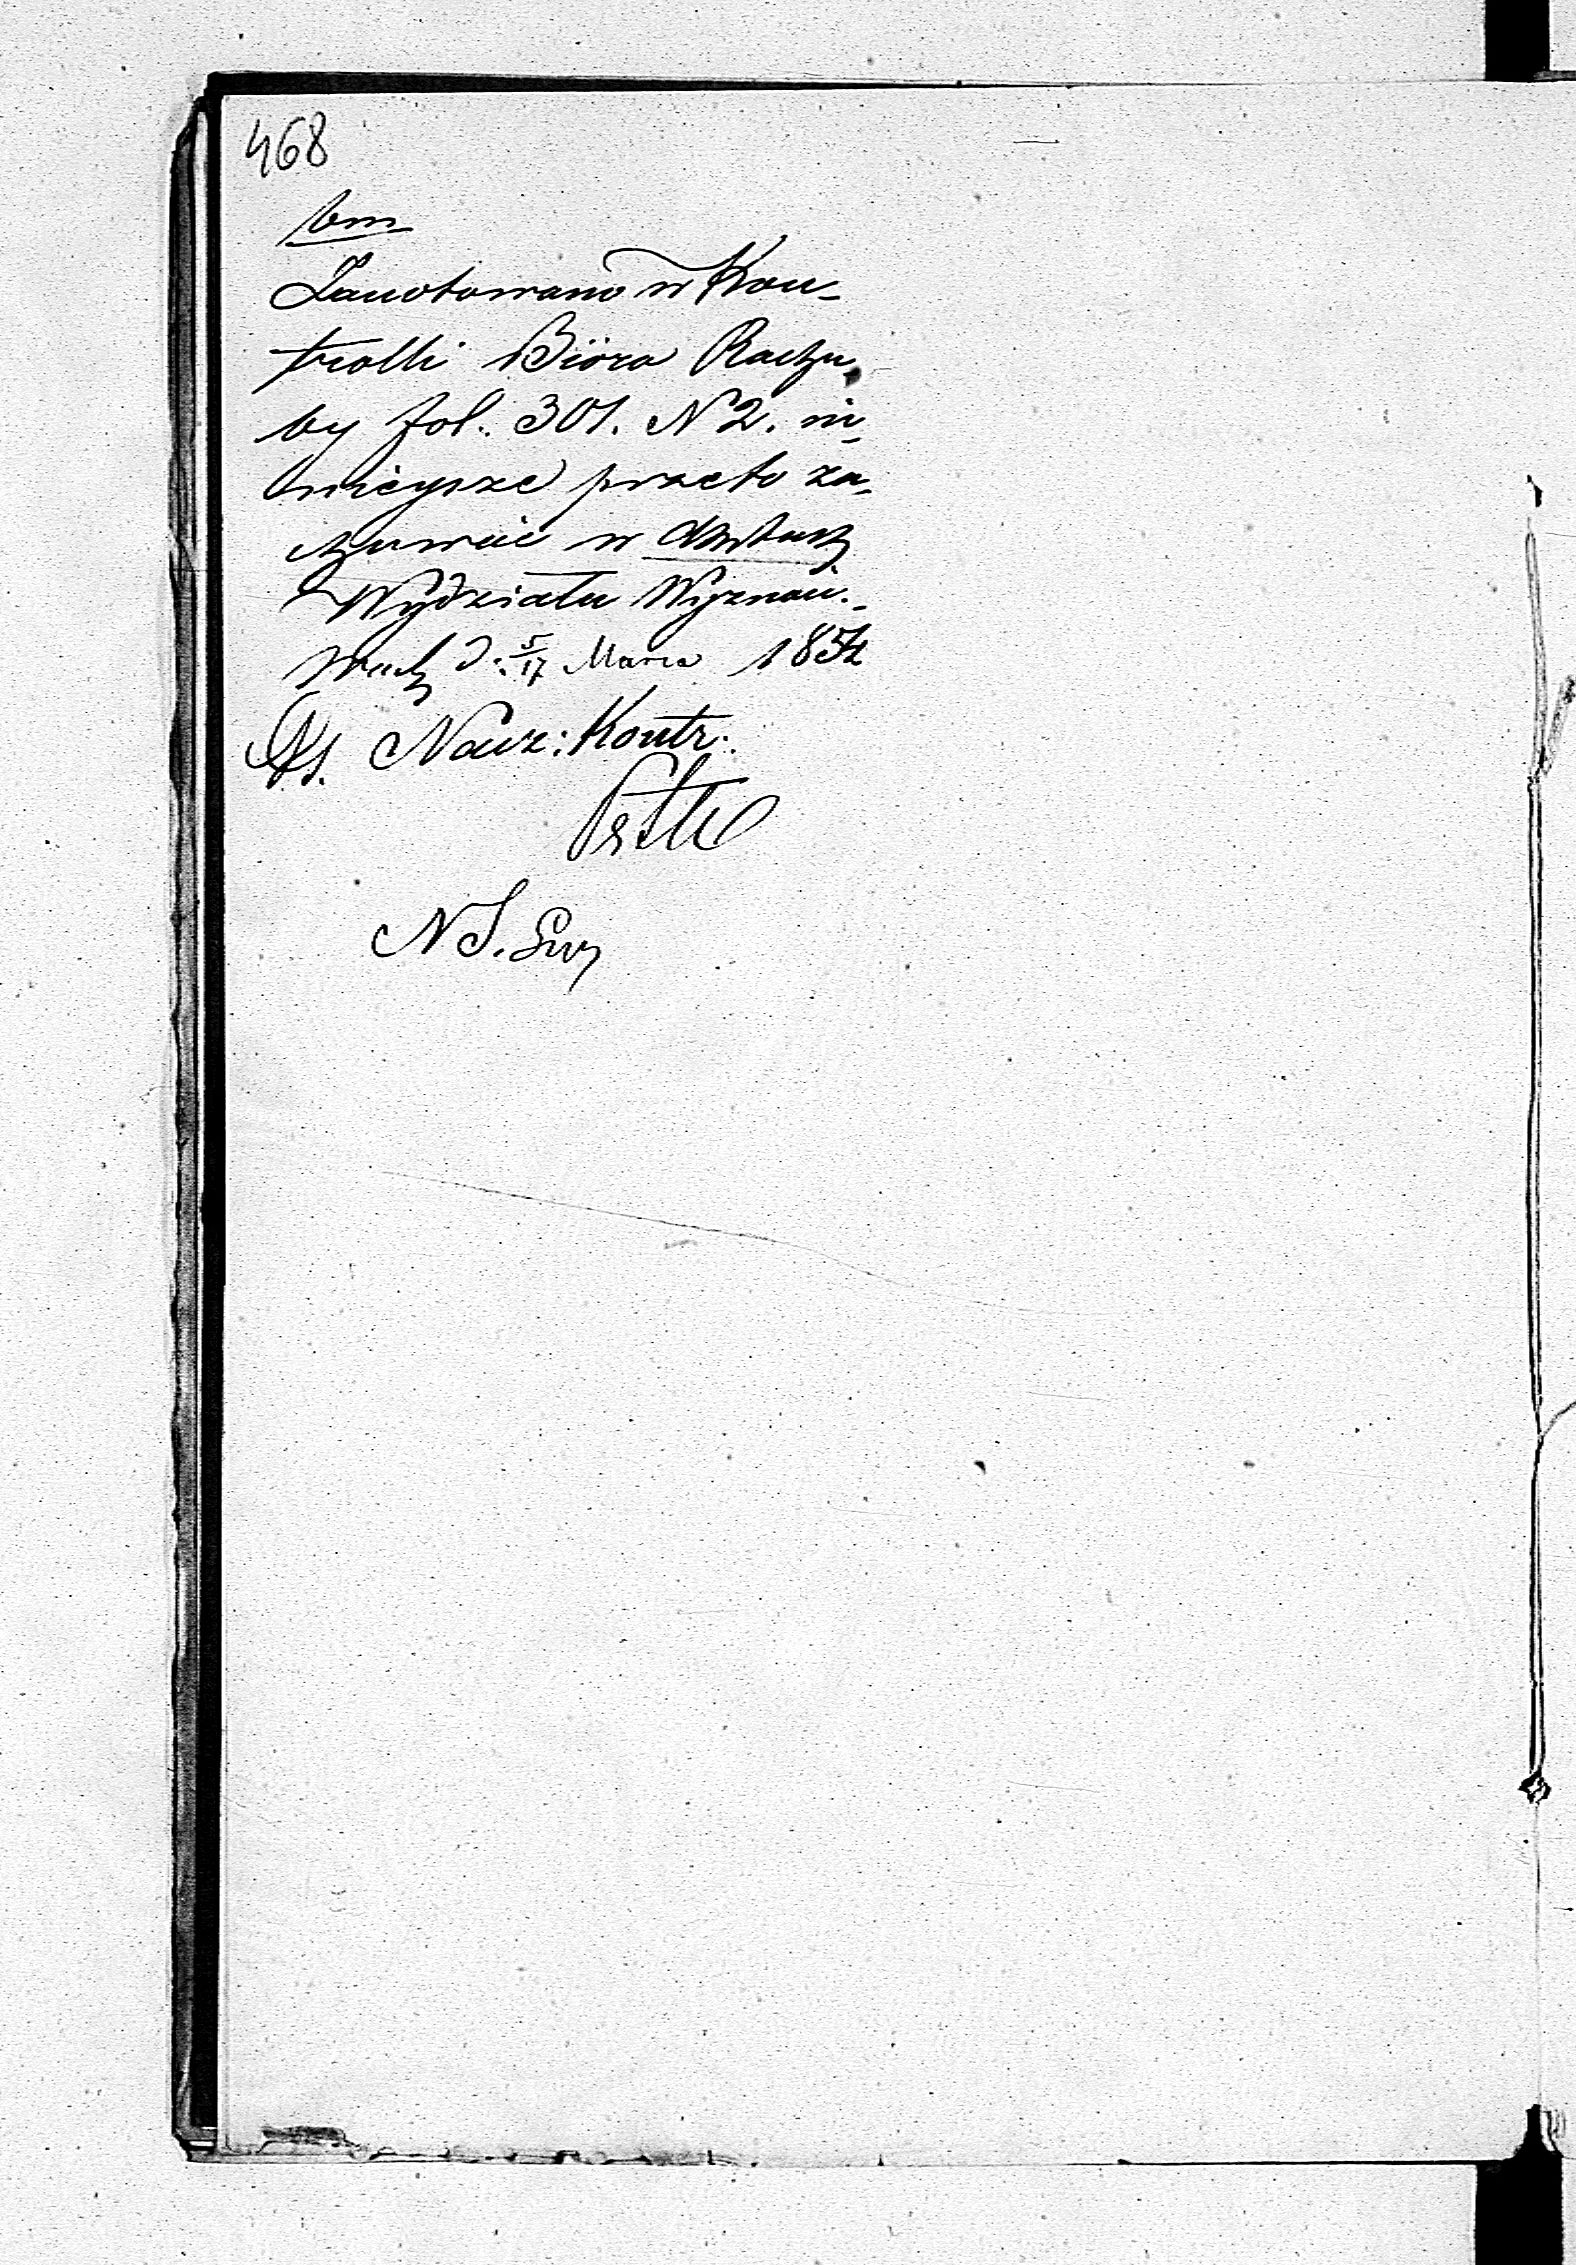 468
bm
Zanotowano w Kon-
trolli Bióra Rachu-
by fol. 301. N 2. ni-
nieysze przeto za-
chować w Aktach
Wydziału Wyznań.
d. 5/17 Marca 1854
Nacz: Kontr.
N S.